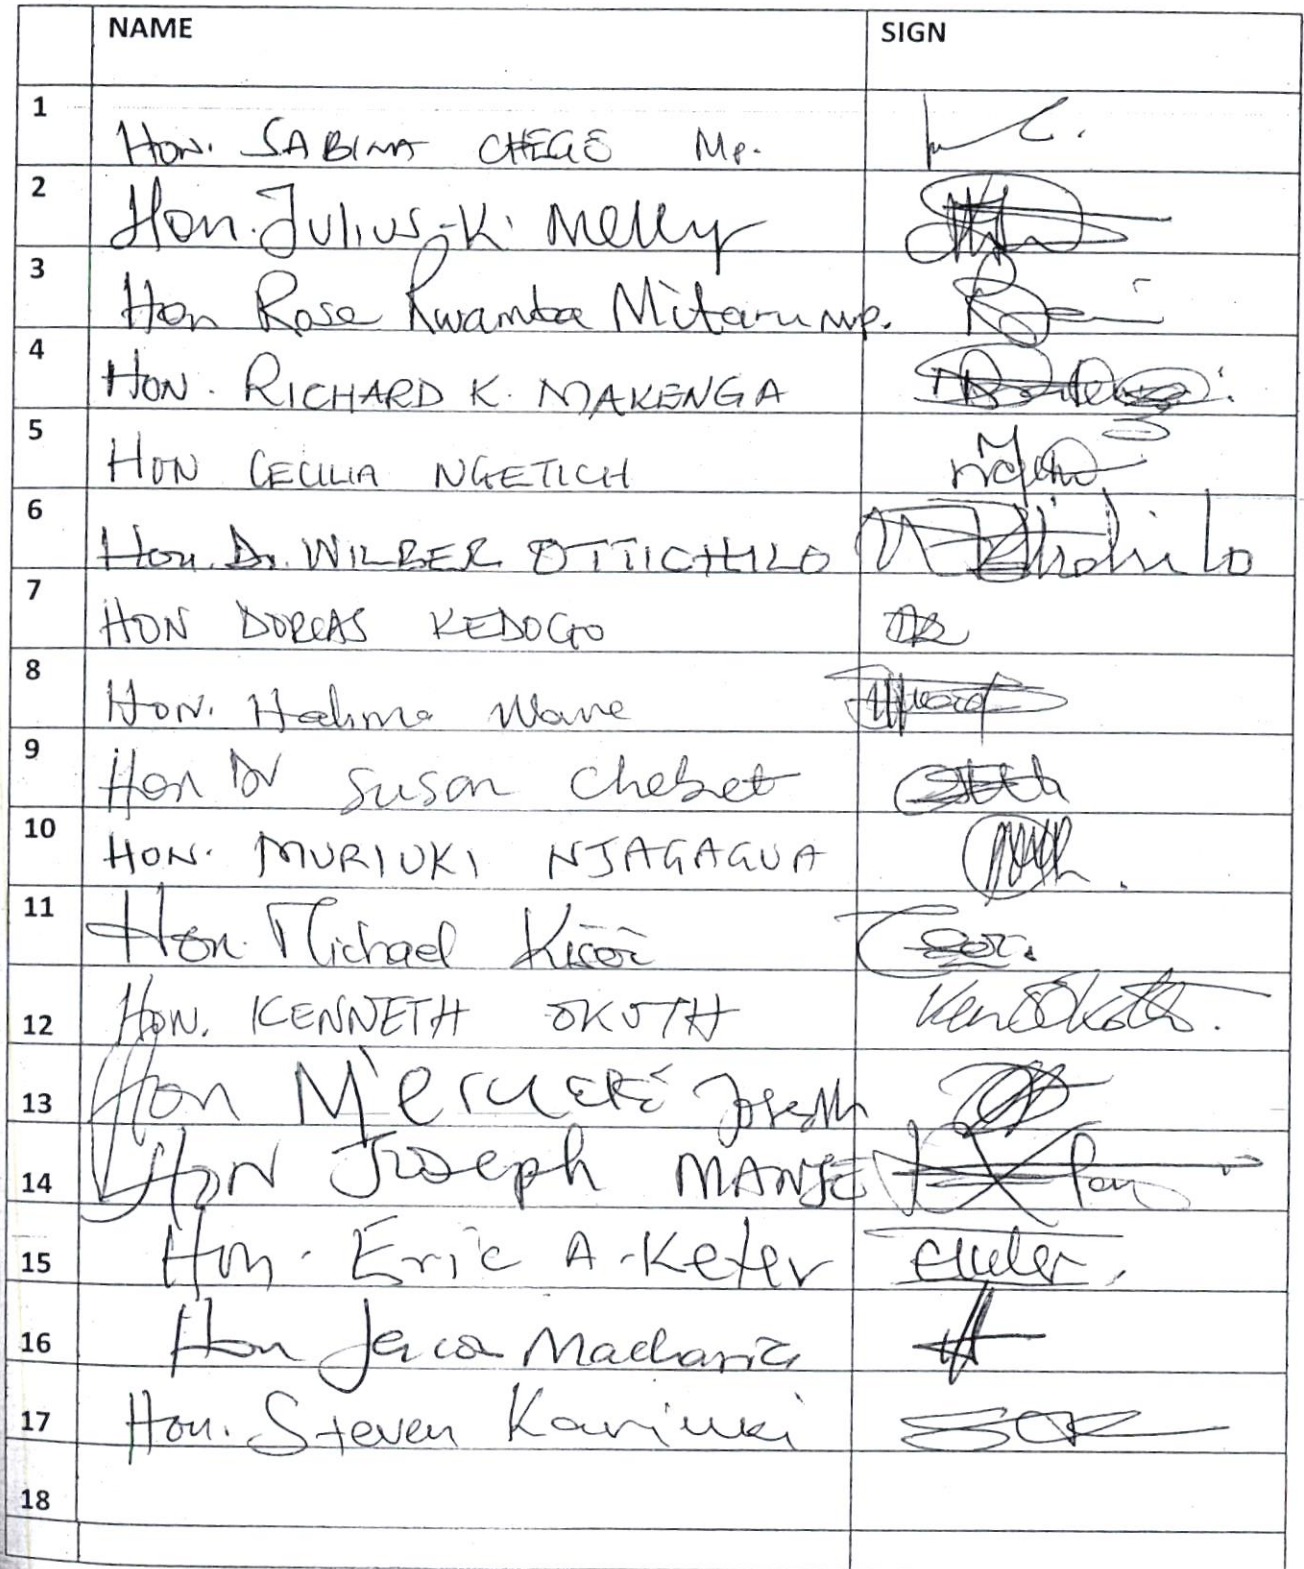 NAME SIGN
1 HON. SABINA CHEGE MP.
2 Hon. Julius K. Melly
3 Hon Rose Rwamba Mitaru MP.
4 HON. RICHARD K. MAKENGA
5 HON CECILIA NGETICH
6 Hon. Dr. WILBER OTTICHILO
7 HON DORCAS KEDOGO
8 HON. Halima Ware
9 Hon Dr Susan Chebet
10 HON. MURIUKI NJAGAGUA
11 Hon. Michael
12 HON. KENNETH OKOTH Ken Okoth.
13 Hon M'eruaki Joseph
14 HON Joseph MANJE
15 Hon. Eric A. Keter
16 Hon Macharia
17 Hon. Steven Kariuki
18